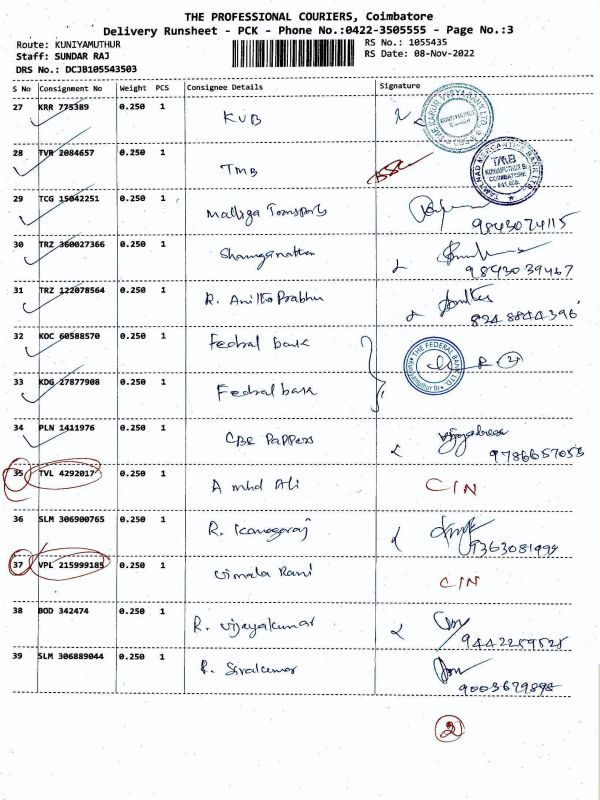 THE PROFESSIONAL COURIERS, Coimbatore
Delivery Runsheet - PCK - Phone No.:0422-3505555 - Page No.:3
Route: KUNIYAMUTHUR
RS No.: 1055435
Staff: SUNDAR RAJ
RS Date: 08-Nov-2022
DRS No.: DCJB105543503
S No Consignment No Weight PCS Consignee Details Signature
27 KRR 775389 0.250 1 KVB
28 TVR 2084657 0.250 1 TMB
TAMILNAD MERCANTILE BANK LTD.
TMB
KUNIYAMUTHUR Br.
COIMBATORE
29 TCG 15042251 0.250 1 Malliga Transports
9843074115
30 TRZ 360027366 0.250 1 Shanmuganathan
9843039467
31 TRZ 122078564 0.250 1 R. Anitha Prabhu
8248844396
32 KOC 60588570 0.250 1 Fedral bank
THE FEDERAL BANK LTD.
33 KDG 27877908 0.250 1 Fedral bank
34 PLN 1411976 0.250 1 CBE Pappers
9786657055
35 TVL 4292017 0.250 1 A mhd Ali C/N
36 SLM 306900765 0.250 1 R. Kanagaraj
9363081999
37 VPL 215999185 0.250 1 Vimala Rani C/N
38 BOD 342474 0.250 1 R. Vijayakumar
9442259525
39 SLM 306889044 0.250 1 P. Sivakumar
9003679898
2